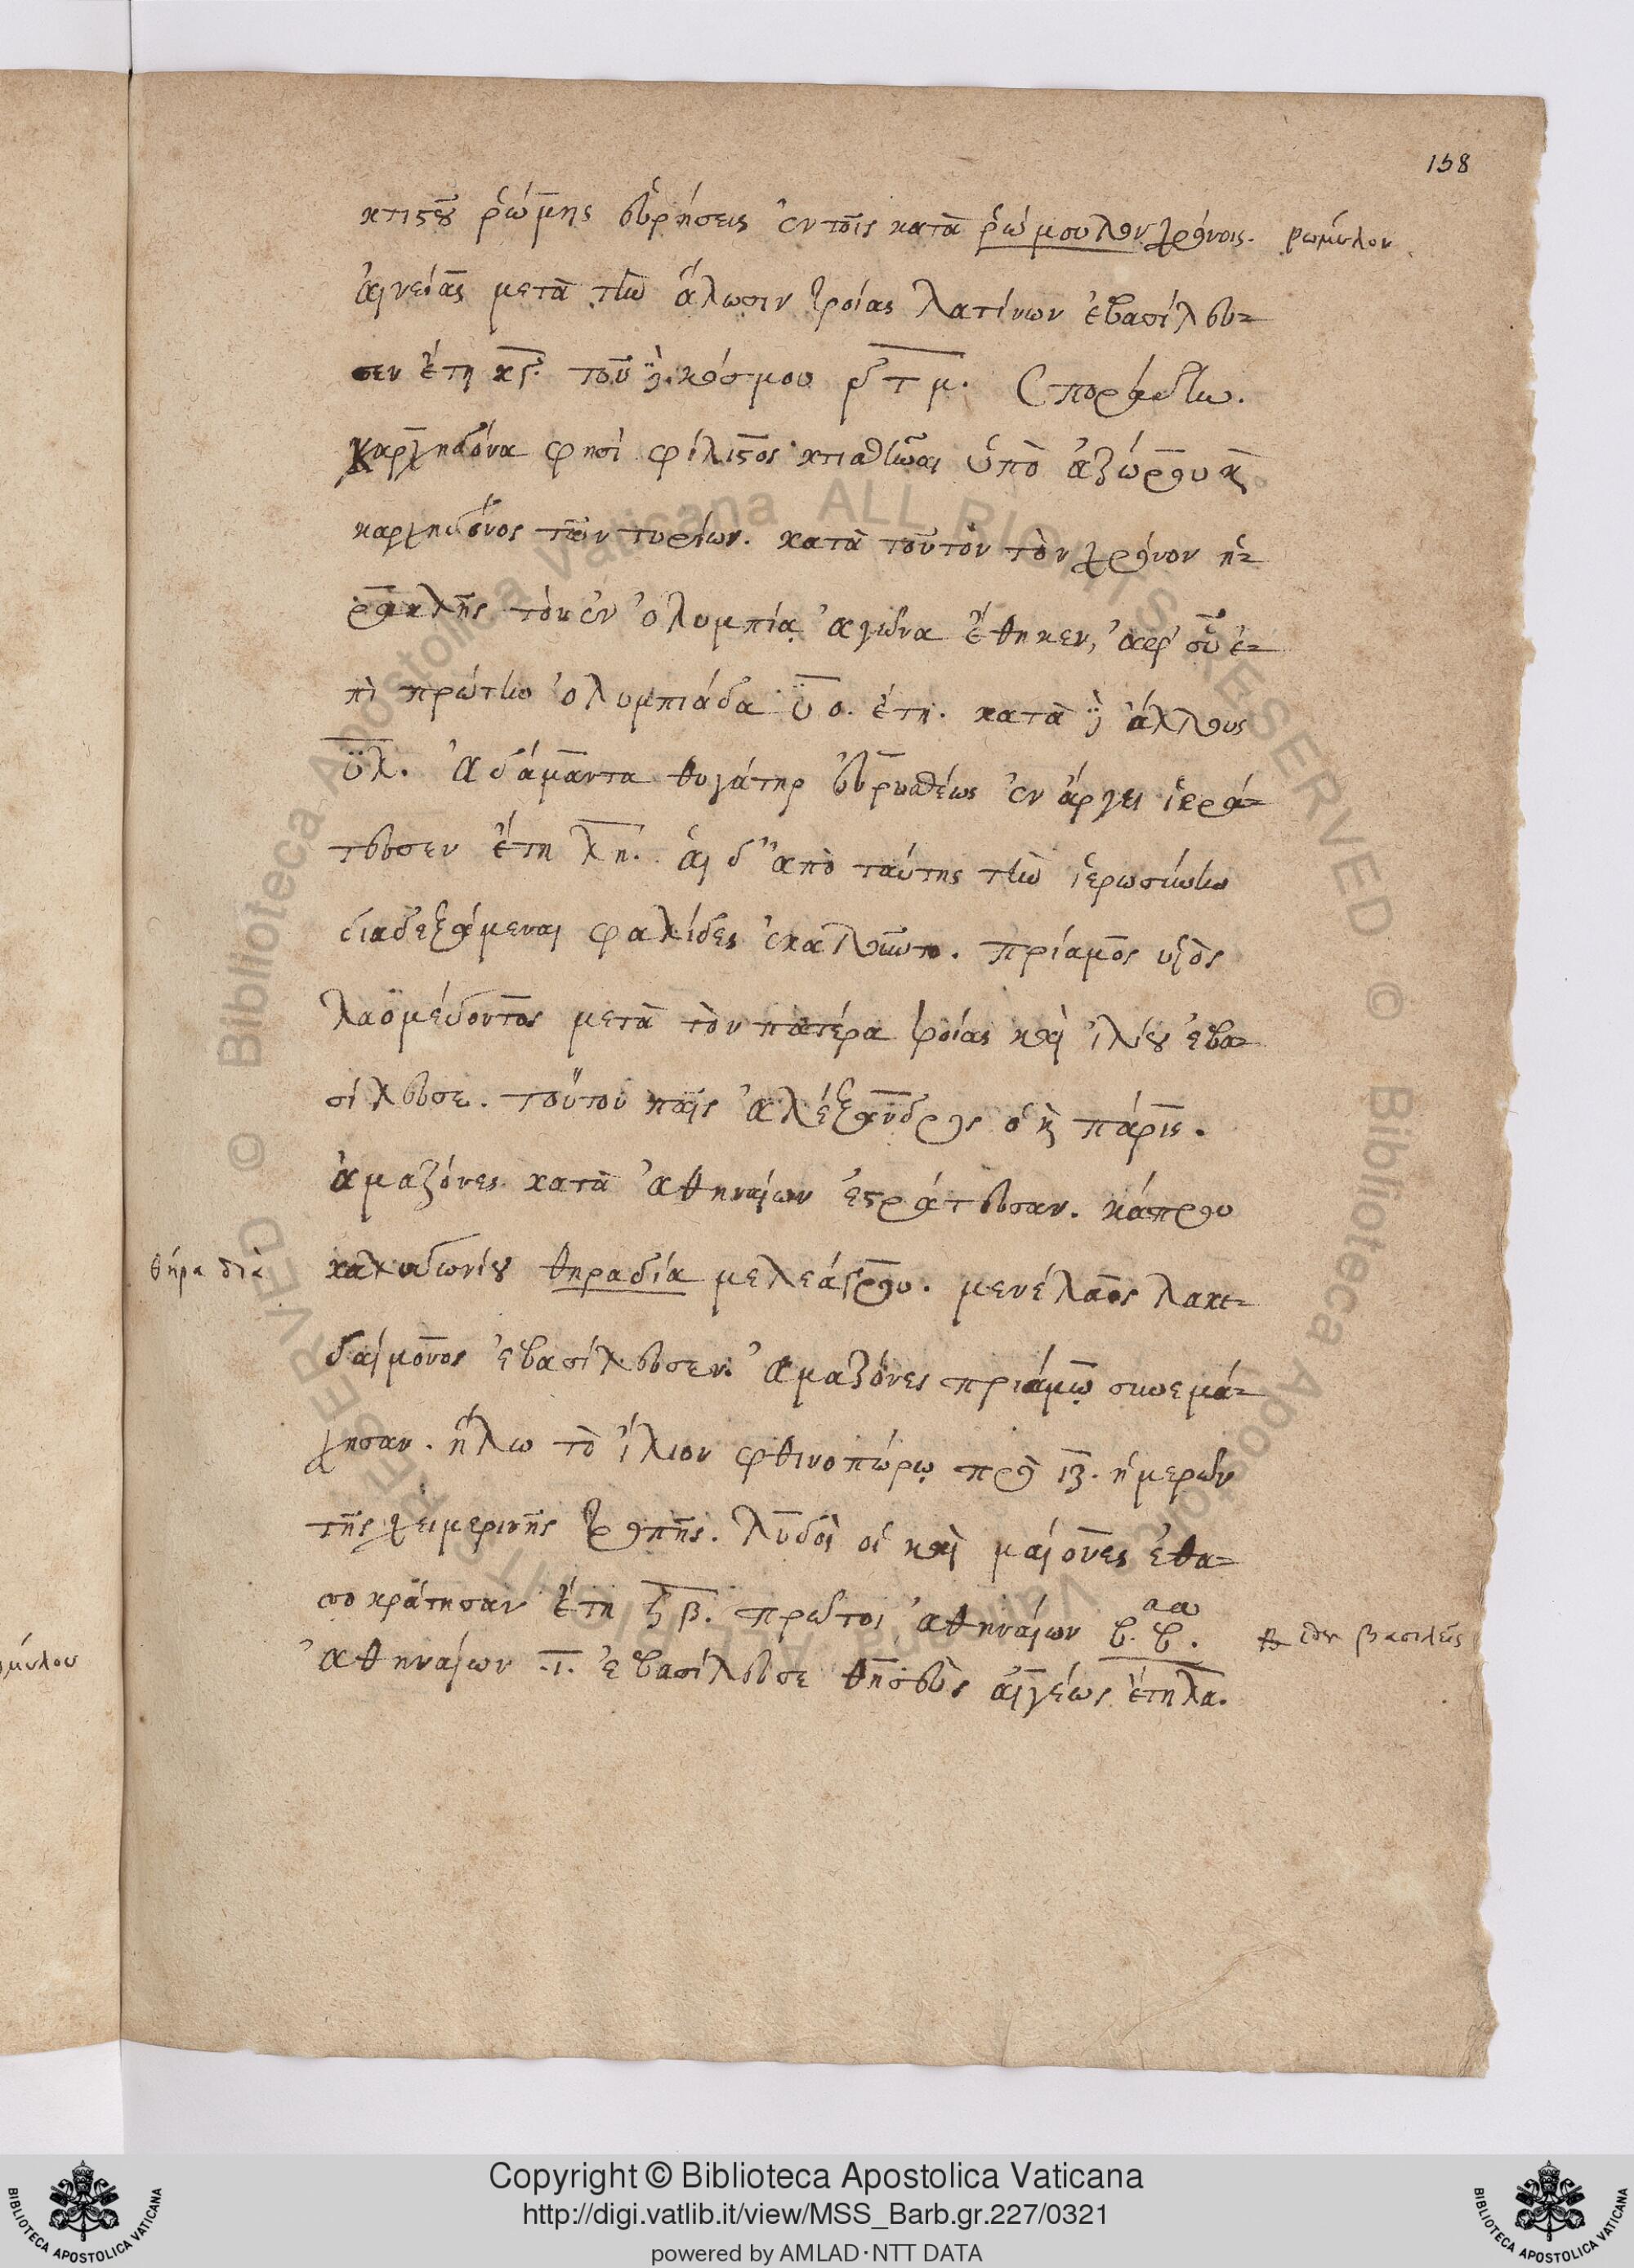 158
κτίστου ῥώμης εὑρήσεις ἐν τοῖς κατὰ ῥώμουλον χρόνοις. ῥωμύλον
αἰνείας μετὰ τὴν ἅλωσιν τροίας λατίνων ἐβασίλευ-
σεν ἔτη κϛ. τοῦ δὲ κόσμου ͵δτμ. Σποράδην.
καρχηδόνα φησὶ φίλιστος κτισθῆναι ὑπὸ ἀζώρου καὶ
καρχηδόνος τῶν τυρίων. κατὰ τοῦτον τὸν χρόνον ἡ-
ρακλῆς τὸν ἐν ὀλυμπίᾳ ἀγῶνα ἔθηκεν, ἀφ' οὗ ἐ-
πὶ πρώτην ὀλυμπιάδα ϋο. ἔτη. κατὰ δὲ ἄλλους
ϋλ. Ἀδάμαντα θυγάτηρ εὐρυσθέως ἐν ἄργει ἱερά-
τευσεν ἔτη λη. αἱ δ' ἀπὸ ταύτης τὴν ἱερωσύνην
διαδεξάμεναι φαλίδες ἐκαλοῦντο. πρίαμος υἱὸς
λαομέδοντος μετὰ τὸν πατέρα τροίας καὶ ἰλίου ἐβα-
σίλευσε. τούτου παῖς ἀλέξανδρος ὁ καὶ πάρις.
ἀμαζόνες κατὰ ἀθηναίων ἐστράτευσαν. κάπρου
θήρα διὰ καλυδωνίου θηραδία μελεάγρου. μενέλαος λακε-
δαίμονος ἐβασίλευσεν. Ἀμαζόνες πριάμῳ συνεμά-
χησαν. ἥλω τὸ ἴλιον φθινοπώρῳ πρὸ ιζ. ἡμερῶν
τῆς χειμερινῆς τροπῆς. λυδοὶ οἱ καὶ μαίονες ἐθα-
σοκράτησαν ἔτη ϟβ. πρῶτοι ἀθηναίων β. β. βασιλεῖς
ἀθηναίων .ι. ἐβασίλευσε θησεὺς αἰγέως ἔτη λα.
Copyright © Biblioteca Apostolica Vaticana
http://digi.vatlib.it/view/MSS_Barb.gr.227/0321
powered by AMLAD·NTT DATA
BIBLIOTECA APOSTOLICA VATICANA
BIBLIOTECA APOSTOLICA VATICANA